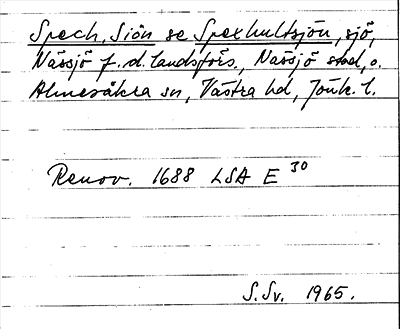 Spech, Siön se Spexhultsjön, sjö,
Nässjö f.d. landsförs., Nässjö stad, o.
Almesåkra sn, Västra hd, Jönk. l.
Renov. 1688 LSA E 30
S. Sv. 1965.